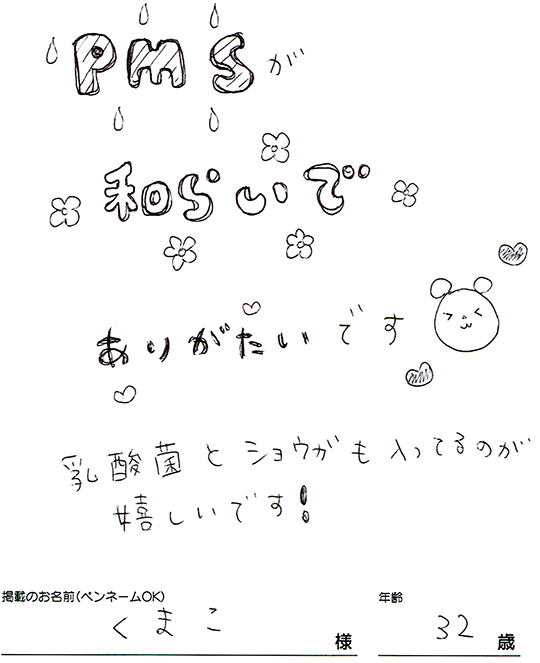 PMSが
和らいで
ありがたいです
乳酸菌とショウガも入ってるのが
嬉しいです!
掲載のお名前(ペンネームOK)
くまこ 様
年齢
32 歳